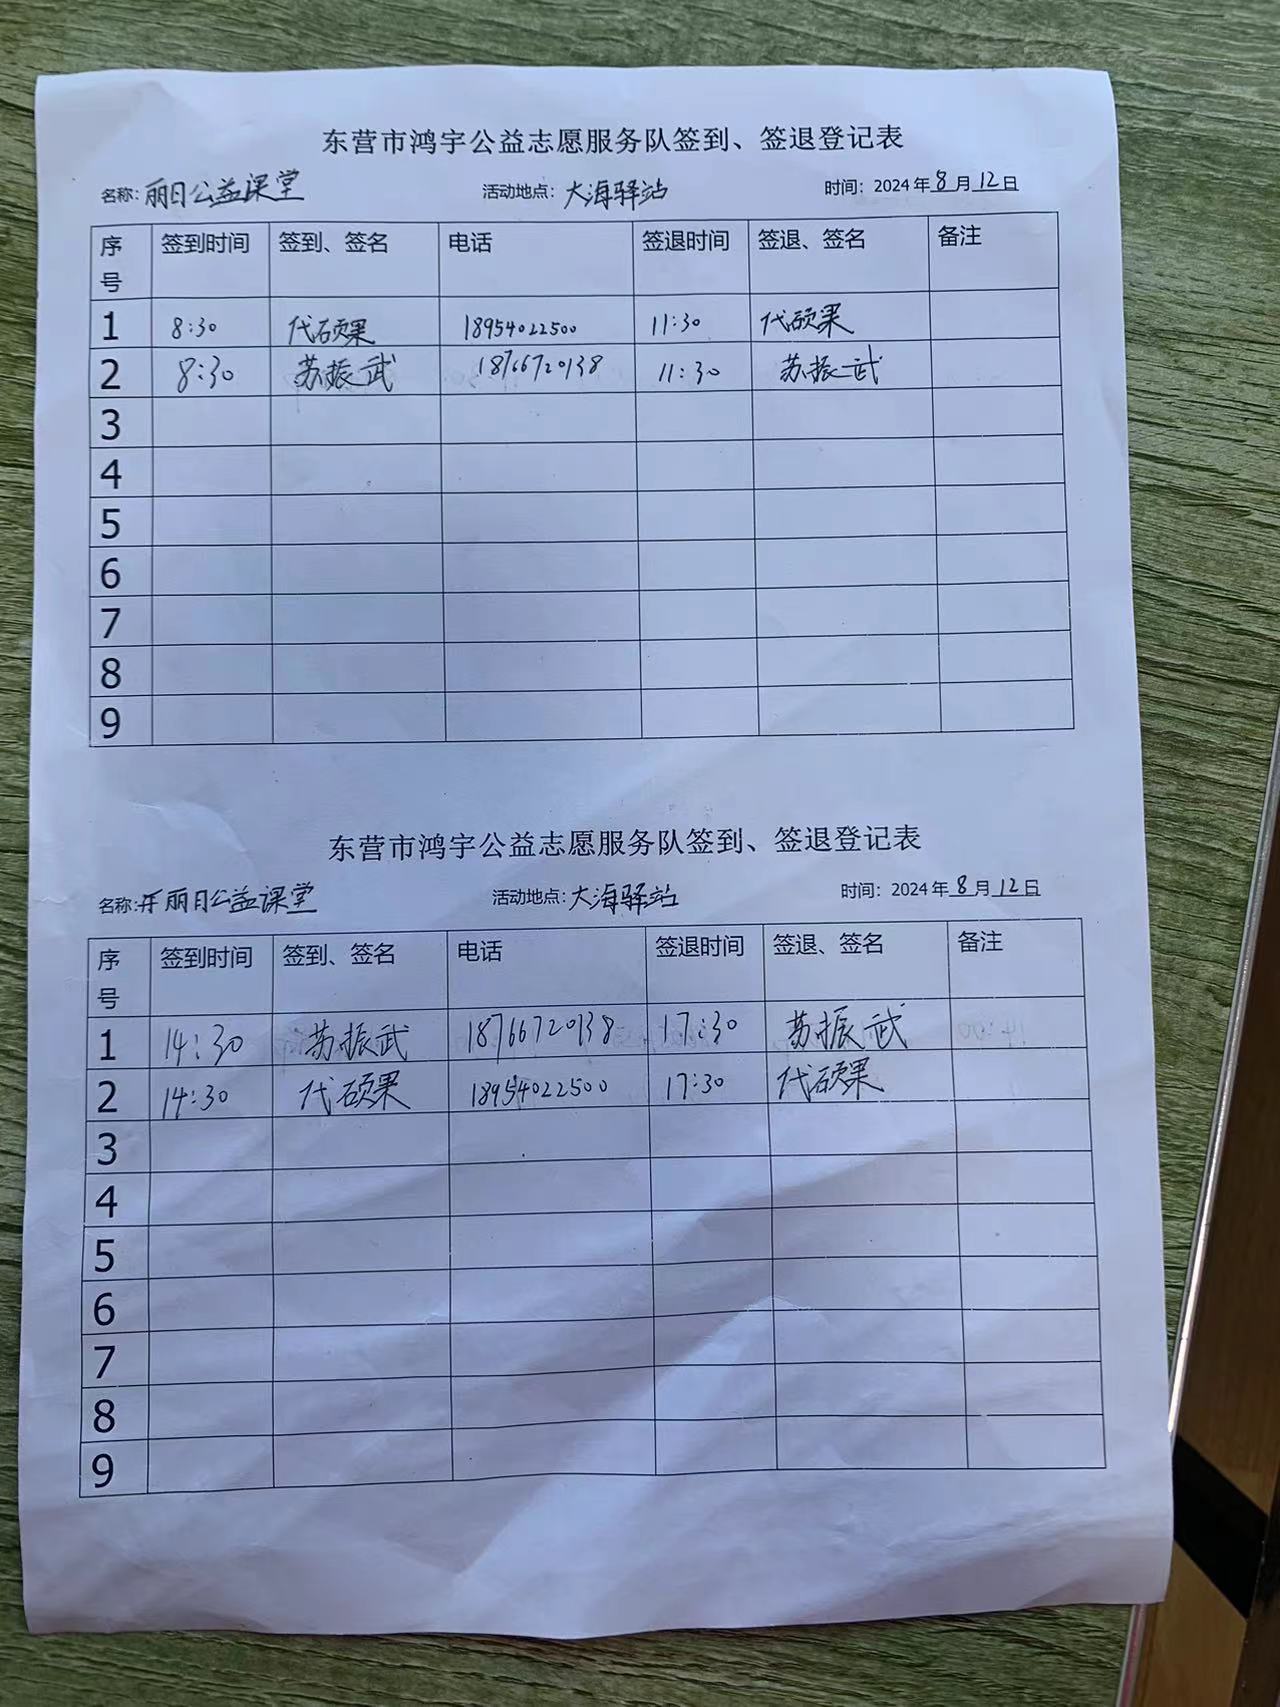 东营市鸿宇公益志愿服务队签到、签退登记表
名称：丽日公益课堂 活动地点：大海驿站 时间：2024年8月12日
序号 签到时间 签到、签名 电话 签退时间 签退、签名 备注
1 8:30 代硕果 18954022500 11:30 代硕果
2 8:30 苏振武 18766720138 11:30 苏振武
3
4
5
6
7
8
9
东营市鸿宇公益志愿服务队签到、签退登记表
名称：丽日公益课堂 活动地点：大海驿站 时间：2024年8月12日
序号 签到时间 签到、签名 电话 签退时间 签退、签名 备注
1 14:30 苏振武 18766720138 17:30 苏振武
2 14:30 代硕果 18954022500 17:30 代硕果
3
4
5
6
7
8
9